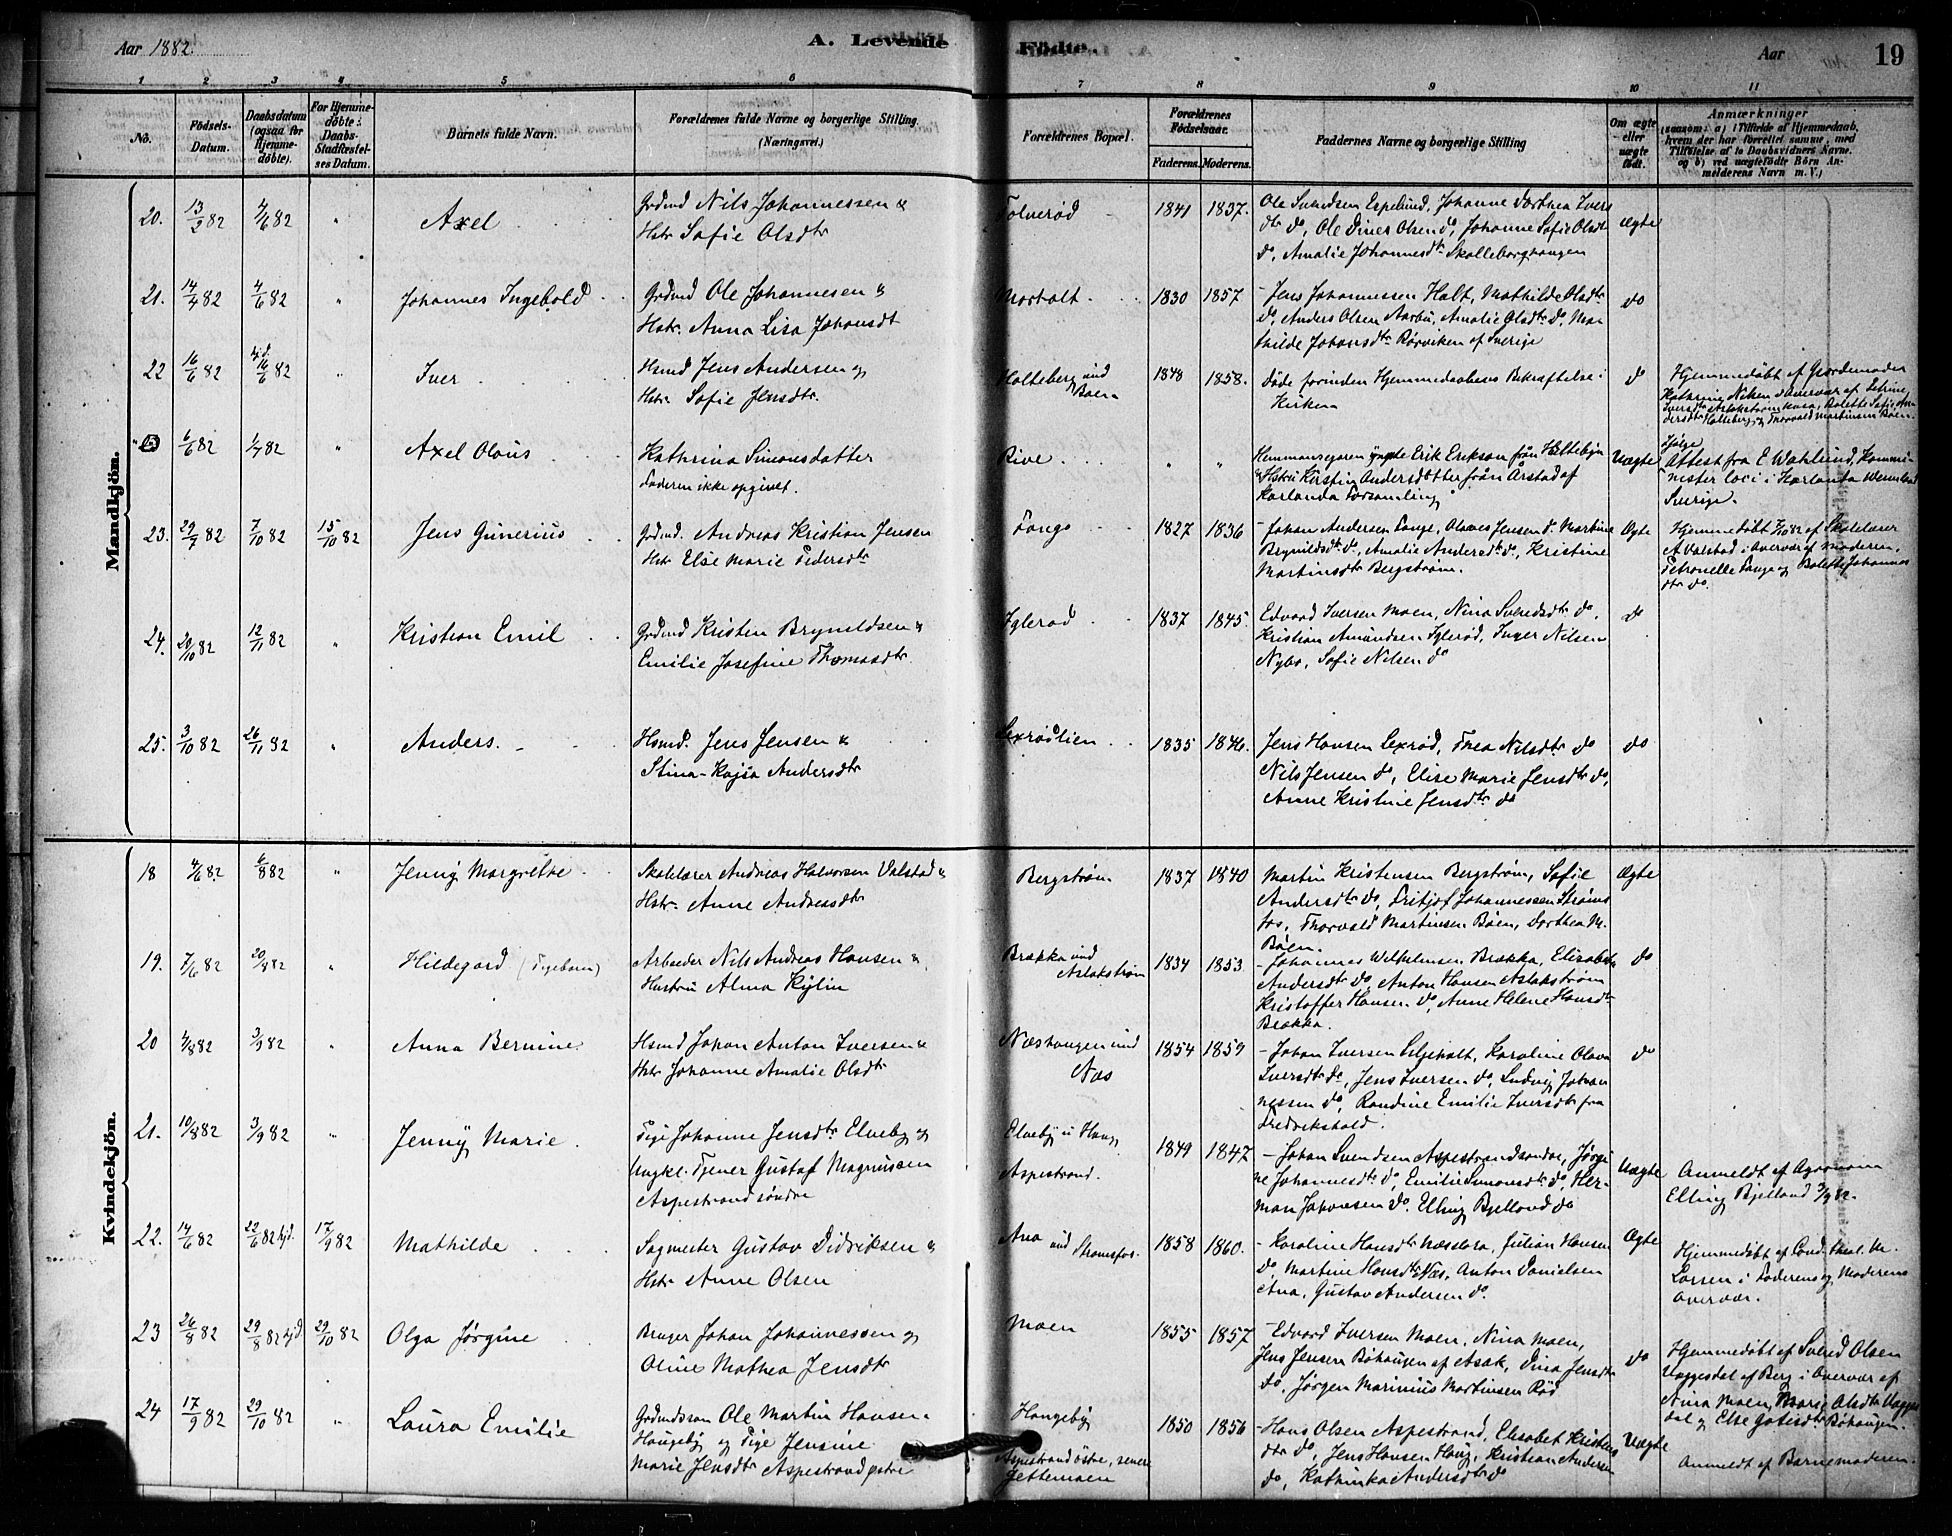 Aar 1882.
A. Levende Födte.
Aar
19
1 2 3 4 5 6 7 8 9 10 11
No.
Födsels-Datum.
Daabsdatum (ogsaa for Hjemme-döbte).
For Hjemme-döbte: Daabs-Stadfæstel-ses Datum.
Barnets fulde Navn.
Forældrenes fulde Navne og borgerlige Stilling. (Næringsvei.)
Forældrenes Bopæl.
Forældrenes Födselsaar.
Faderens. Moderens.
Faddernes Navne og borgerlige Stilling
Om ægte eller uægte födt.
Anmærkninger
(saasom: a) i Tilfælde af Hjemmedaab, hvem der har forrettet samme, med Tilföielse af to Daabsvidners Navne, og b) ved uægtefödte Börn An-melderens Navn m. V.)
Mandkjön.
20. 13/2 82 4/6 82 " Axel
Grdmd Nils Johannessen &
Hstr Sofie Olsdtr
Tolverød 1841 1837.
Ole Svendsen Espelund, Johanne Dorthea Ivers
dtr do, Ole Dines Olsen do, Johanne Sofie Olsdt
do, Amalie Johannesdtr Skolleborghaugen
Ægte
21. 14/4 82 4/6 82 " Johannes Ingebold
Grdmd Ole Johannesen &
Hstr. Anna Lisa Johansdt
1830 1857
Jens Johannessen Holt, Mathilde Olsdtr
do, Anders Olsen Aarbu, Amalie Olsdtr do, Ma-
thilde Johansdtr Rørviken af Sverige
do
22 16/6 82 hjd. 16/6 82 " Iver
Hsmd Jens Andersen og
Hstr. Sofie Jensdtr.
Holteberg und Boen
1848 1858.
Døde forinden Hjemmedaabens Bekræftelse i
Kirken
do
Hjemmedøbt af Gjordemoder
Kathrine Nilsen i Overvær af Petrine
6/6 82 1/7 82 " Axel Olaus
Kathrina Simonsdatter
Faderen ikke opgivet.
Rive " "
Hemmansegaren yngste Erik Erikson från Hæltebyn
& Hstru Kerstin Andersdotter från Årstad af
Karlanda Forsamling
Uægte
Ifølge
Attest fra E. Wahlund, Kommi-
nister loci i Karlanda Wermland
Sverige.
23. 29/7 82 7/10 82 15/10 82 Jens Gunerius
Grdmd. Andreas Kristian Jensen
Hstr Else Marie Pedersdtr
Fange 1827 1836
Johan Andersen Fange, Olaves Jensen do, Martine
Brynildsdtr do, Amalie Andersdtr do, Kristine
Martinsdtr Bergstrøm.
Ægte
Hjemmedøbt 7/10 82 af Skolelærer
A Valstad i Overvær af Moderen,
Petronelle Fange og Bolette Johannes
dtr do.
24. 20/10 82 12/11 82 " Kristian Emil
Grdmd Kristen Brynildsen &
Emilie Josefine Thomasdtr
Iglerød 1837 1845.
Edvard Iversen Moen, Nina Svendsdtr do,
Kristian Amundsen Iglerød, Inger Nilsen
Nybo, Sofie Nilsen do
do
25. 3/10 82 26/11 82 " Anders.
Hsmd. Jens Jensen &
Stina-Kajsa Andersdtr
Lexrødlien 1835 1846.
Jens Hansen Lexrød, Thea Nilsdtr do
Nils Jensen do, Elise Marie Jensdtr do,
Anne Kristine Jensdtr do
do
Kvindekjön.
18 4/6 82 6/8 82 " Jenny Margrethe
Skolelærer Andreas Halvorsen Valstad &
Hstr. Anne Andreasdtr
Bergstrøm 1837 1840
Martin Kristensen Bergstrøm, Sofie
Andersdtr do, Fritjof Johannessen Strøms
fos, Thorvald Martinsen Bøen, Dorthea M.
Bøen.
Ægte
19. 7/6 82 20/8 82 " Hildegard (Pigebarn)
Arbeider Nils Andreas Hansen &
Hustru Alma Kylin
Brækka und Aslakstrøm
1834 1853
Johannes Wilhelmsen Brækka, Elisabeth
Andersdtr do, Anton Hansen Aslakstrøm
Kristoffer Hansen do, Anne Helene Hansdtr
Brækka.
do
20 4/8 82 3/9 82 " Anna Bernine
Hsmd Johan Anton Iversen &
Hstr Johanne Amalie Olsdtr
Næshaugen und Næs
1854 1859
Johan Iversen Liljeholt, Karoline Olava
Iversdtr do, Jens Iversen do, Ludvig Johan
nessen do, Randine Emilie Iversdtr fra
Fredrikshald.
do
21. 10/8 82 3/9 82 " Jenny Marie
Pige Johanne Jensdtr Elneby og
Ungkl. Tjener Gustaf Magnussen
Aspestrand søndre
Aspestrand.
1849 1847
Johan Svendsen Aspestrand søndre, Jørgi
ne Johannesdtr do, Emilie Simonsdtr do, Her-
man Johnsen do, Elling Bjelland do
Uægte
Anmeldt af Agronom
Elling Bjelland 3/9 82.
22. 14/6 82 22/6 82 hjd. 17/9 82 Mathilde
Sagmester Gustav Didriksen &
Hstr Anne Olsen
Ana und Strømsfos.
1858 1860.
Karoline Hansdtr Næsdora, Julian Hansen
do, Martine Hansdtr Næs, Anton Danielsen
Ana, Gustav Andersen do.
Ægte
Hjemmedøbt af Cand. theol. M.
Larsen i Faderens og Moderens
Overvær.
23 26/8 82 29/8 82 hjd. 29/10 82 Olga Jørgine
Bruger Johan Johannessen og
Oline Mathea Jensdtr
Moen 1855 1857
Edvard Iversen Moen, Nina Moen,
Jens Jensen Bøhaugen af Asak, Dina Jensdtr
do, Jørgen Marinius Martinsen Rød
do
Hjemmedøbt af Svend Olsen
Vaggesdal af Berg i Overvær af
Nina Moen, Marie Olsdtr Vagges
dal og Else Jensdtr Bøhaugen.
24 17/9 82 29/10 82 " Laura Emilie
Grdmdssøn Ole Martin Hansen
Haugeby og Pige Jensine
Marie Jensdtr Aspestrand østre
Haugeby
Aspestrand østre, senere
Jettemoen
1850 1856
Hans Olsen Aspestrand, Elisabet Kristens
dtr do, Jens Hansen Haug, Kristian Andersen
do, Kathinka Andersdtr do
Uægte
Anmeldt af Barnemoderen.